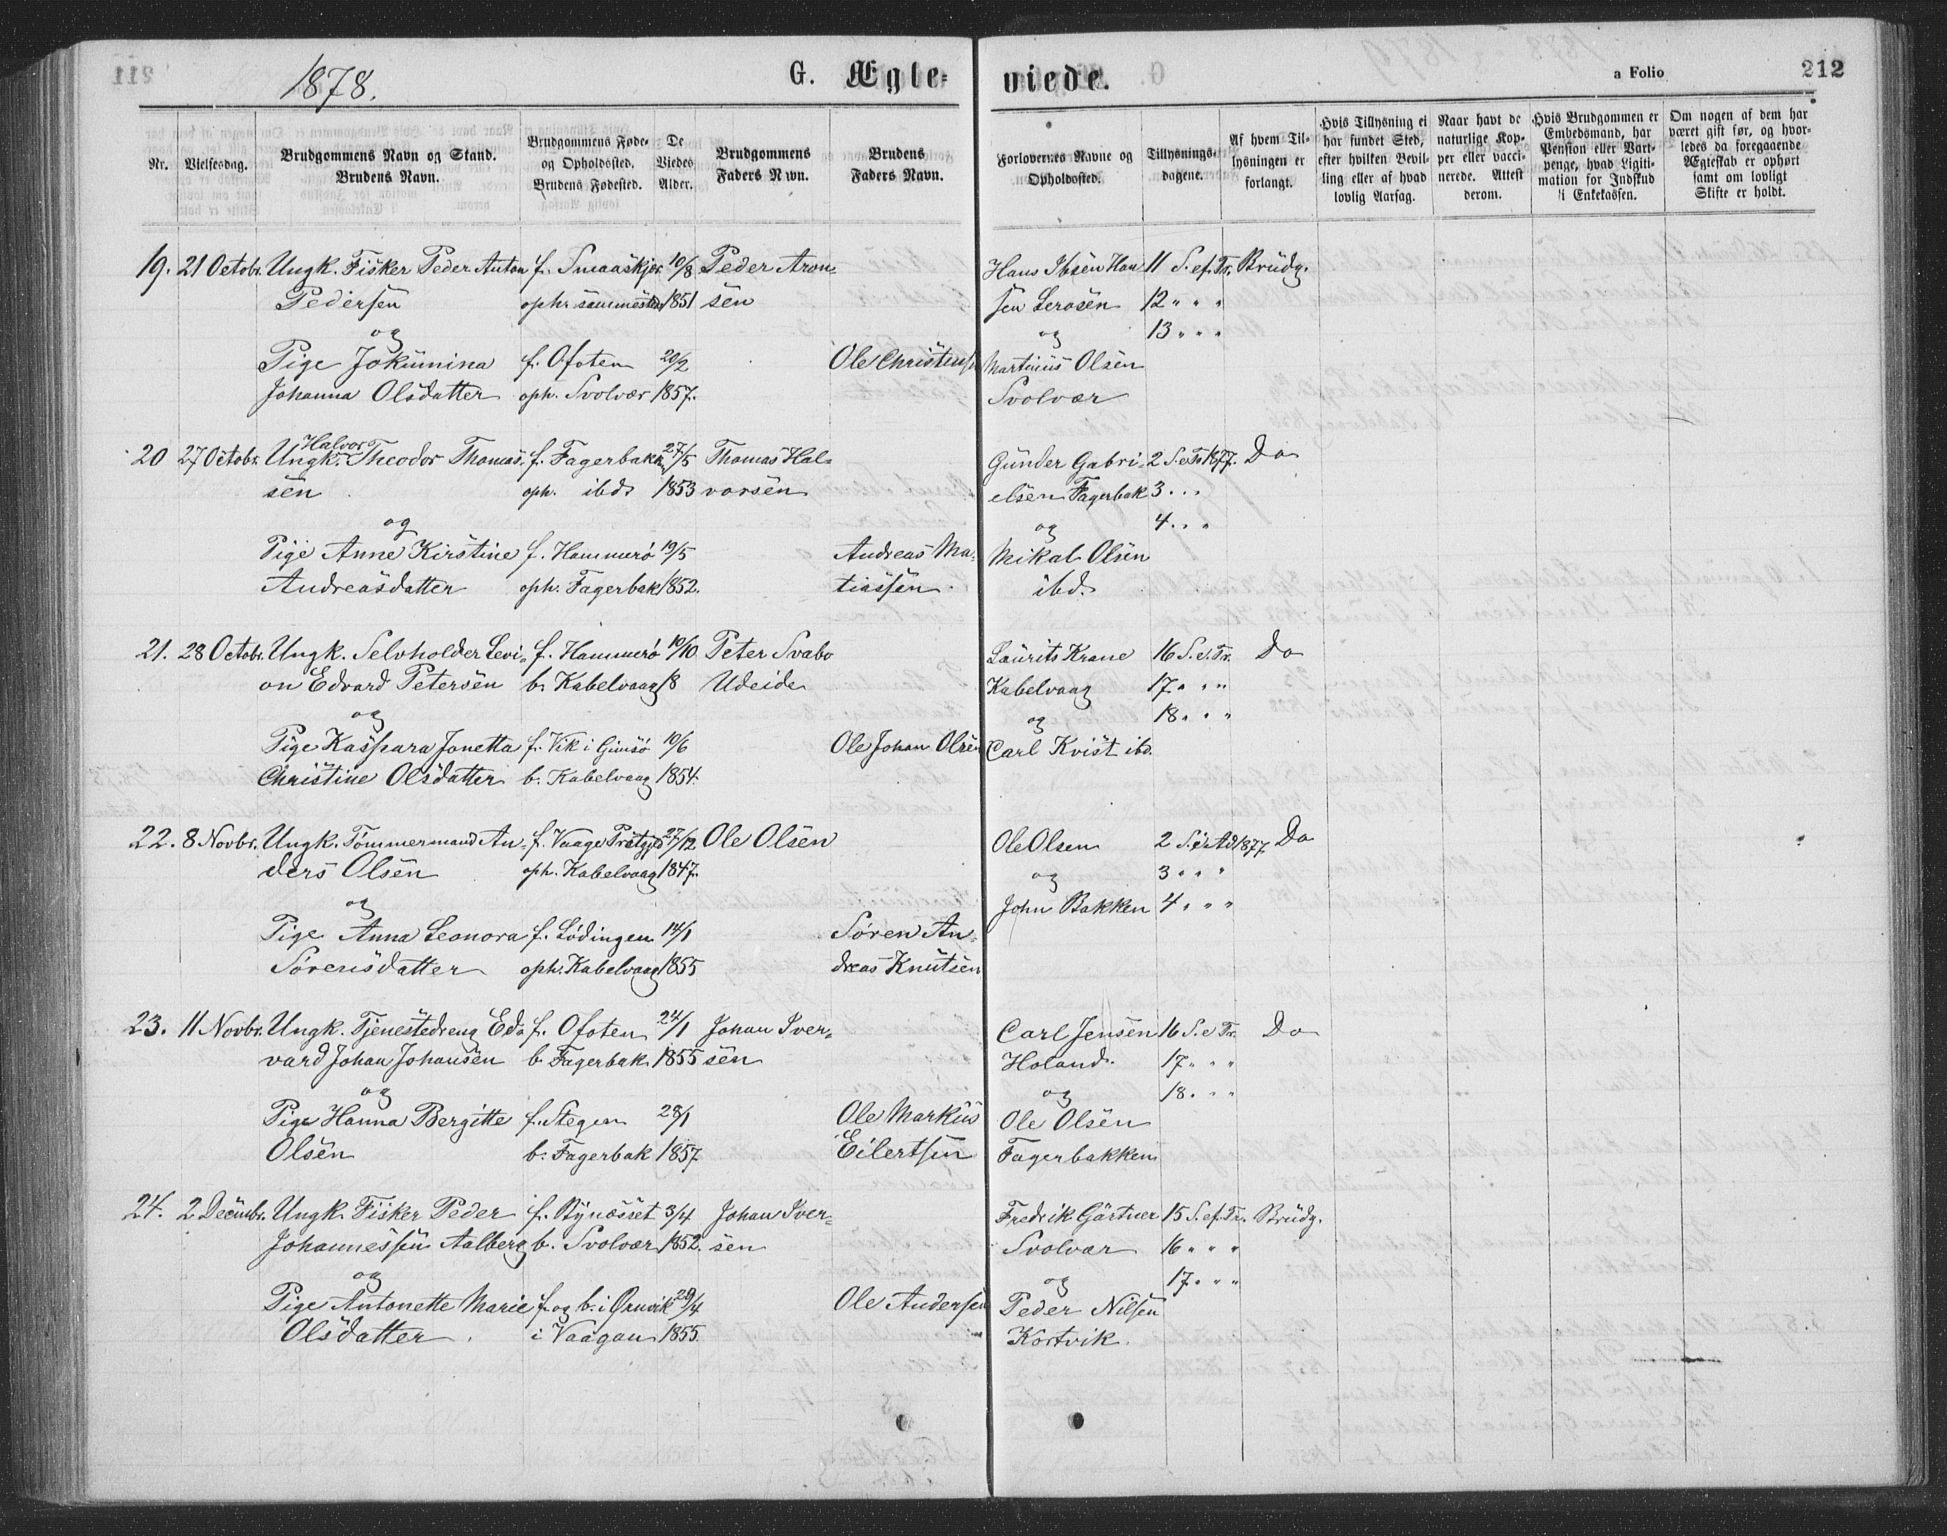 1878.
G. Ægte-
viede.
a Folio
212
Nr.
Vielsesdag.
Brudgommens Navn og Stand.
Brudens Navn.
Brudgommens Føde-
og Opholdssted.
Brudens Fødested.
De
Viedes
Alder.
Brudgommens
Faders Navn.
Brudens
Faders Navn.
Forlovernes Navne og
Opholdssted.
Tillysnings-
dagene.
Af hvem Til-
lysningen er
forlangt.
Hvis Tillysning ei
har fundet Sted,
efter hvilken Bevil-
ling eller af hvad
lovlig Aarsag.
Naar havt de
naturlige Kop-
per eller vacci-
nerede. Attest
derom.
Hvis Brudgommen er
Embedsmand, har
Pension eller Vart-
penge, hvad Ligiti-
mation for Indskud
i Enkekassen.
Om nogen af dem har
været gift før, og hvor-
ledes da foregaaende
Ægteskab er ophørt
samt om lovligt
Skifte er holdt.
19. 21 Octobr. Ungk. Fisker Peder Anton f. Smaaskjær 10/8 Peder Aron- Hans Ibsen Han 11 S. ef. Tr. Brudg.
Pedersen oph. sammested 1851 sen sen Lerosen 12 " " "
og og 13 " " "
Pige Jokumina f. Ofoten 20/2 Ole Christensen Martinus Olsen
Johanna Olsdatter oph. Svolvær 1857. Svolvær
Halvor
20 27 Octobr. Ungk. Theodor Thomas- f. Fagerbakk 27/5 Thomas Hal- Gunder Gabri- 2 S. e. Tr. 1877. Do
sen oph. ibd. 1853 vorsen elsen Fagerbak 3 " " "
og og 4 " " "
Pige Anne Kirstine f. Hammerø 19/5 Andreas Ma- Mikal Olsen
Andreasdatter oph. Fagerbak 1852. tiassen ibd.
21. 28 Octobr. Ungk. Selvholder Levi- f. Hammerø 10/10 Peter Svabo Laurits Krane 16 S. e. Tr. Do
on Edvard Petersen b. Kabelvaag 18 Udeide Kabelvaag 17 " " "
og og 18 " " "
Pige Kaspara Jonetta f. Vik i Gimsø 10/6 Ole Johan Olsen Carl Kvist ibd.
Christine Olsdatter b. Kabelvaag 1854.
22. 8 Novbr. Ungk. Tømmermand An- f. Vaage Præstgjd 27/12 Ole Olsen Ole Olsen 2 S. i Ad 1877. Do
ders Olsen oph. Kabelvaag 1847. og 3 " " "
og John Bakken 4 " " "
Pige Anna Leonora f. Lødingen 14/1 Søren An-
Sørensdatter oph. Kabelvaag 1855 dreas Knutsen
23. 11 Novbr. Ungk. Tjenestedreng Ed- f. Ofoten 24/1 Johan Iver- Carl Jensen 16 S. e. Tr. Do
vard Johan Johansen b. Fagerbak 1855 sen Holand. 17 " " "
og og 18 " " "
Pige Hanna Bergitte f. Stegen 28/1 Ole Markus Ole Olsen
Olsen b. Fagerbak 1857. Eilertsen Fagerbakken
24. 2 Decembr. Ungk. Fisker Peder f. Bynæsset 3/4 Johan Iver- Fredrik Gärtner 15 S. ef. Tr. Brudg.
Johannessen Aalberg b. Svolvær 1852. sen Svolvær 16 " " "
og og 17 " " "
Pige Antonette Marie f. og b. i Ørnvik 29/4 Ole Andersen Peder Nilsen
Olsdatter i Vaagan 1855. Kortvik.